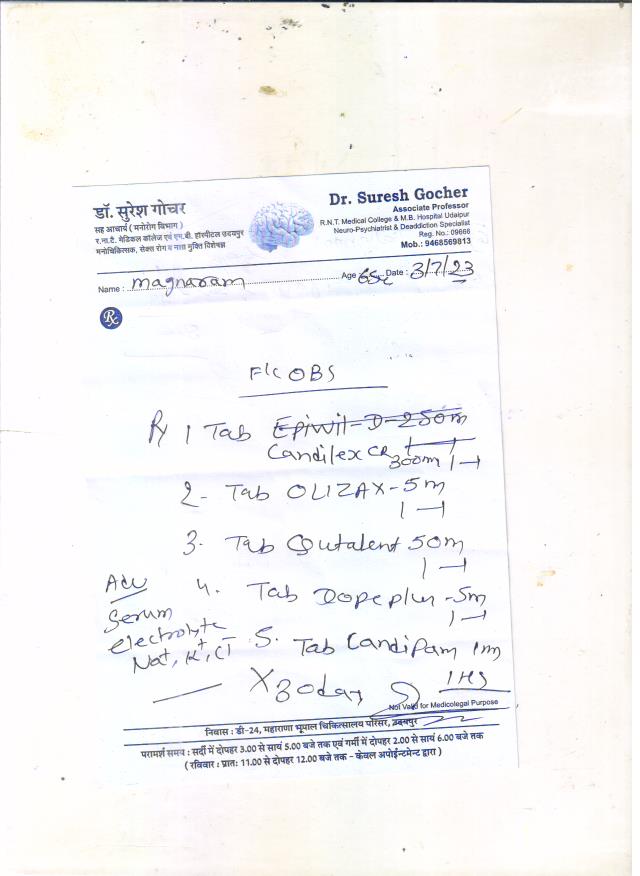 डॉ. सुरेश गोचर
सह आचार्य ( मनोरोग विभाग )
र.ना.टै. मेडिकल कॉलेज एवं एम.बी. हॉस्पीटल उदयपुर
मनोचिकित्सक, सेक्स रोग व नशा मुक्ति विशेषज्ञ
Dr. Suresh Gocher
Associate Professor
R.N.T. Medical College & M.B. Hospital Udaipur
Neuro-Psychiatrist & Deaddiction Specialist
Reg. No.: 09666
Mob.: 9468569813
Name : magnaram Age 65 Date : 3/7/23
Rx
F/C OBS
Rx 1 Tab Epiwil-D-250m
Candilex CR 300m 1-1
2- Tab OLIZAX-5m
1-1
3. Tab Qutalent 50m
1-1
4. Tab Dopeplus-5m
1-1
Adv
Serum
electrolyte
Na+, K+, Cl-
5. Tab Candipam 1m
1HS
X 30 days
Not Valid for Medicolegal Purpose
निवास : डी-24, महाराणा भूपाल चिकित्सालय परिसर, उदयपुर
परामर्श समय : सर्दी में दोपहर 3.00 से सायं 5.00 बजे तक एवं गर्मी में दोपहर 2.00 से सायं 6.00 बजे तक
( रविवार : प्रातः 11.00 से दोपहर 12.00 बजे तक - केवल अपोईन्टमेन्ट द्वारा )